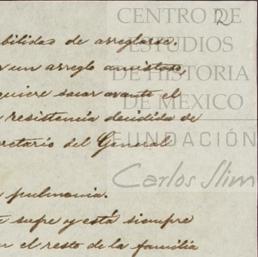 CENTRO DE
ESTUDIOS
DE HISTORIA
DE MEXICO
FUNDACIÓN
Carlos Slim
2
bilidad de arreglarse.
un arreglo amistoso,
quiere sacar avante el
resistencia decidida de
cretario del General
pulmonia.
supe y está siempre
el resto de la familia